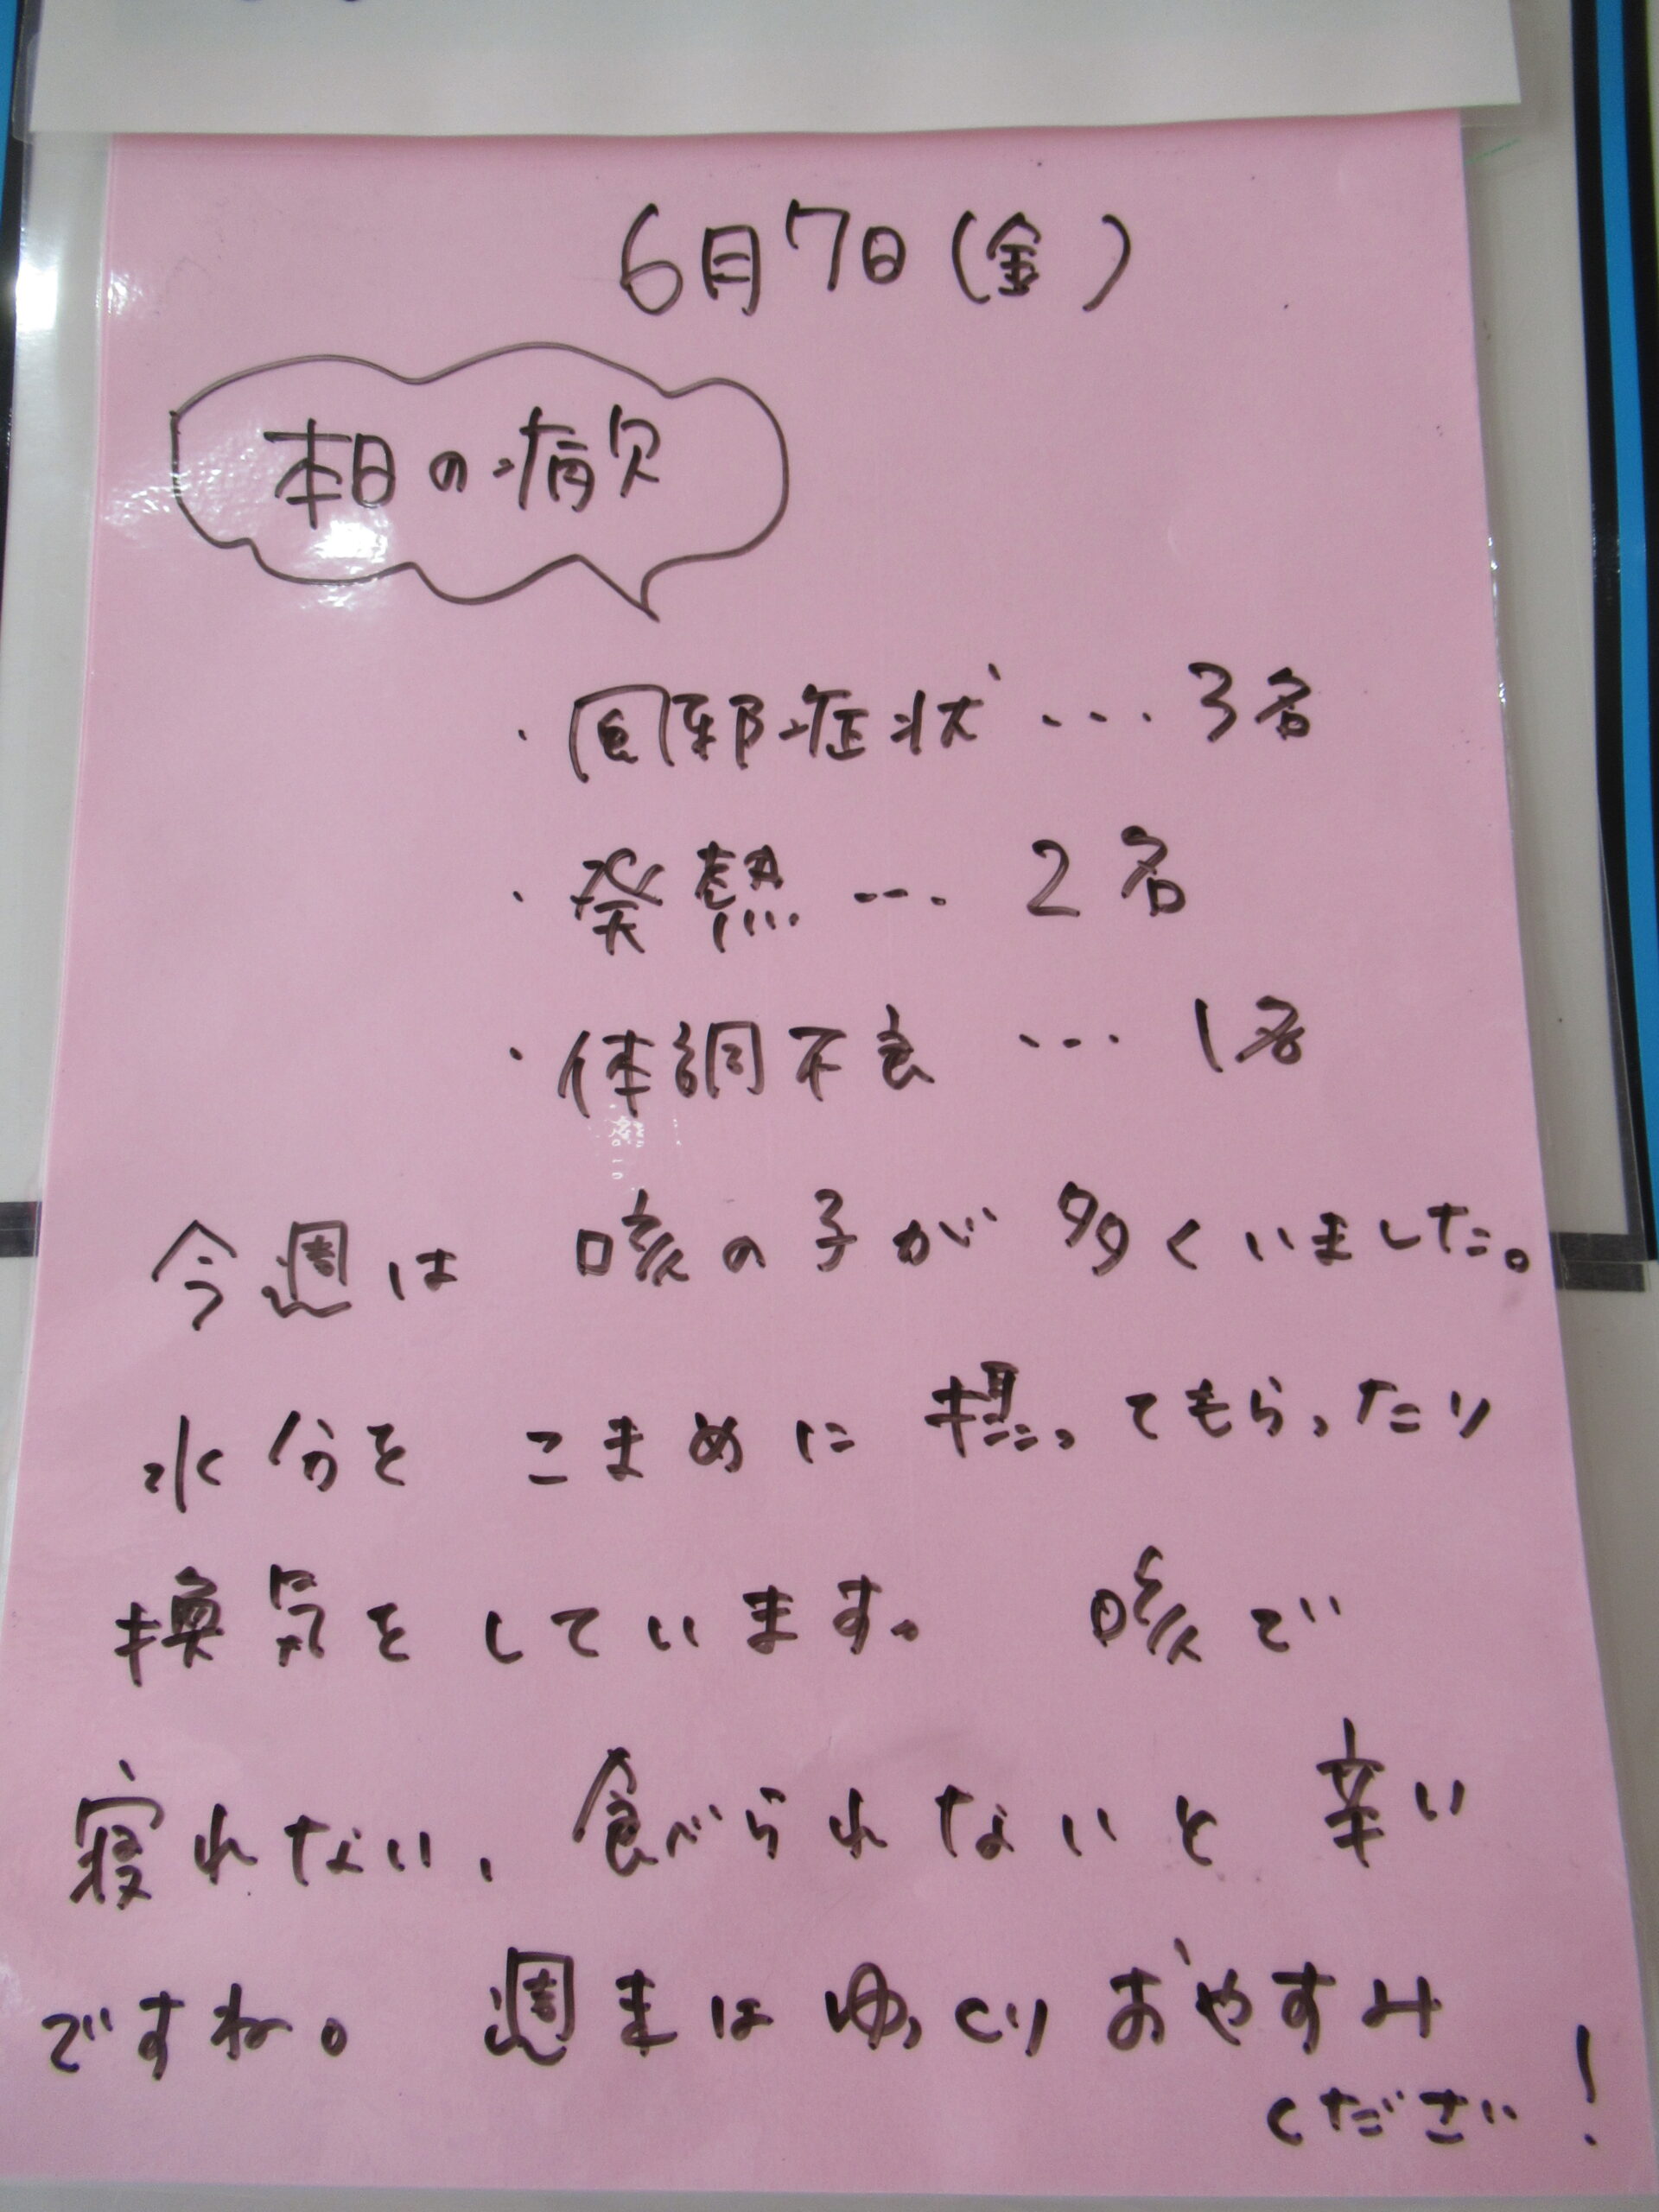 6月7日(金)
本日の病欠
・風邪症状…3名
・発熱…2名
・体調不良…1名
今週は 咳の子が多くいました。
水分を こまめに摂ってもらったり
換気をしています。 咳で
寝れない、食べられないと辛い
ですね。 週末はゆっくりおやすみ
ください!